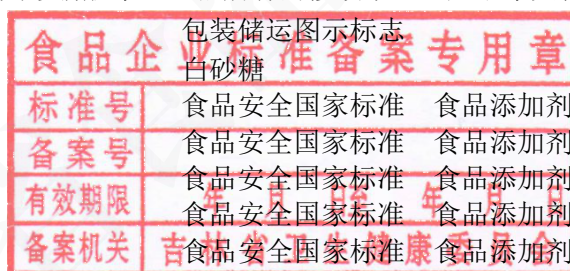 包装储运图示标志
食品企业标准备案专用章
白砂糖
标准号
食品安全国家标准 食品添加剂
备案号
食品安全国家标准 食品添加剂
食品安全国家标准 食品添加剂
有效期限 年 月 日至 年 月 日
食品安全国家标准 食品添加剂
备案机关 吉林省卫生健康委员会
食品安全国家标准 食品添加剂